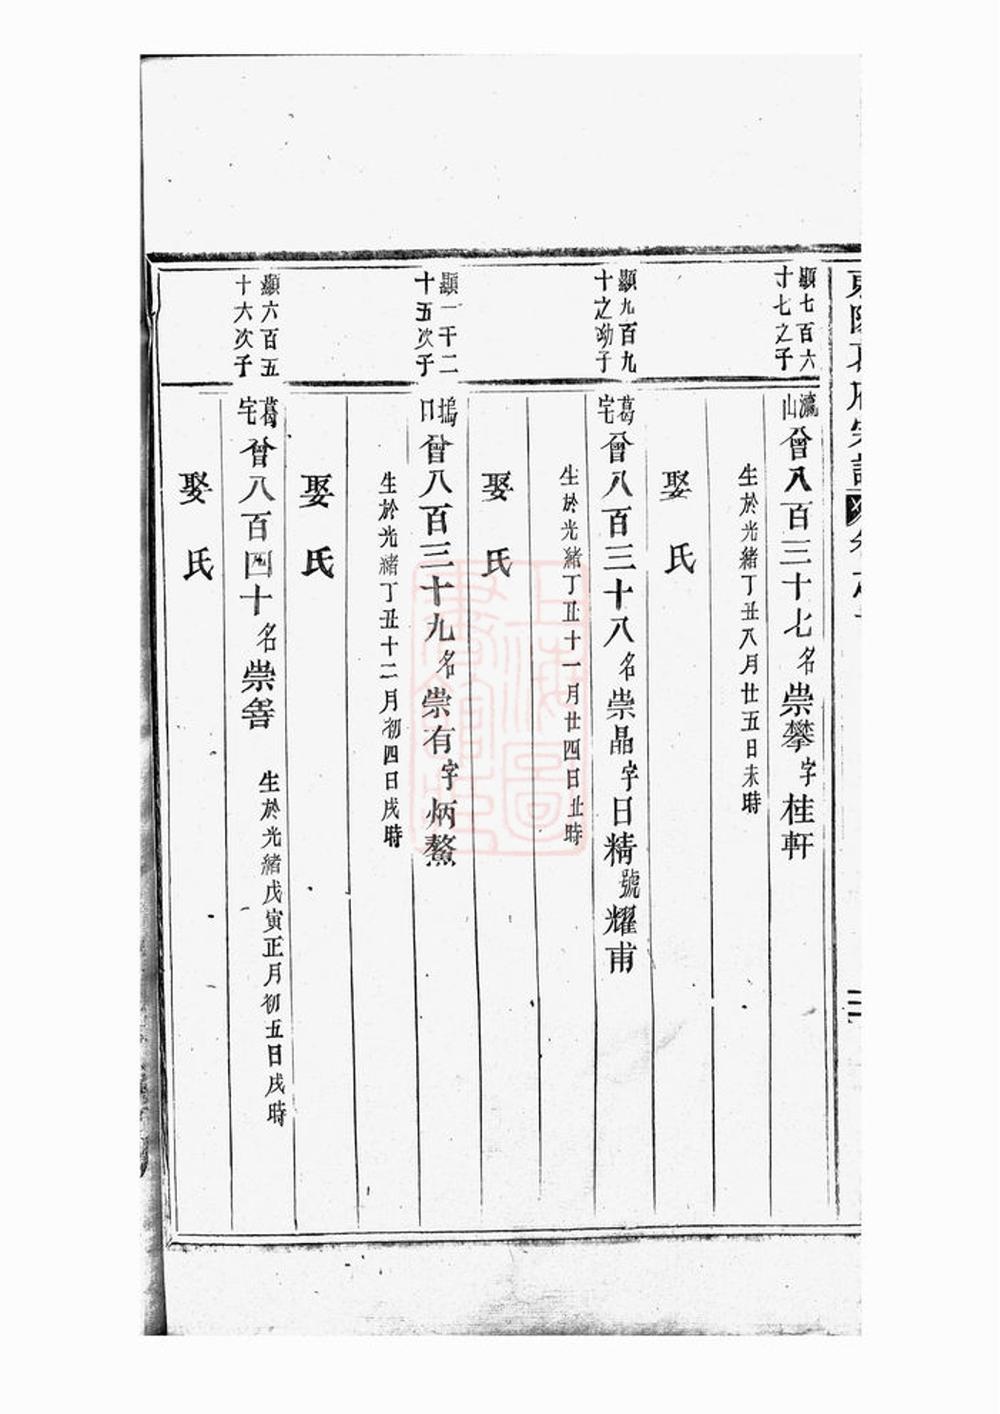 顯七百六
十七之子
瀛
山
曾八百三十七名崇攀字桂軒
生於光緒丁丑八月廿五日未時
娶氏
顯九百九
十之幼子
葛
宅
曾八百三十八名崇晶字日精號耀甫
生於光緒丁丑十一月廿四日 時
娶氏
顯一千二
十五次子
塢
口
曾八百三十九名崇有字炳鰲
生於光緒丁丑十二月初四日戌時
娶氏
顯六百五
十六次子
葛
宅
曾八百四十名崇善
生於光緒戊寅正月初五日戌時
娶氏
上海圖
書館藏